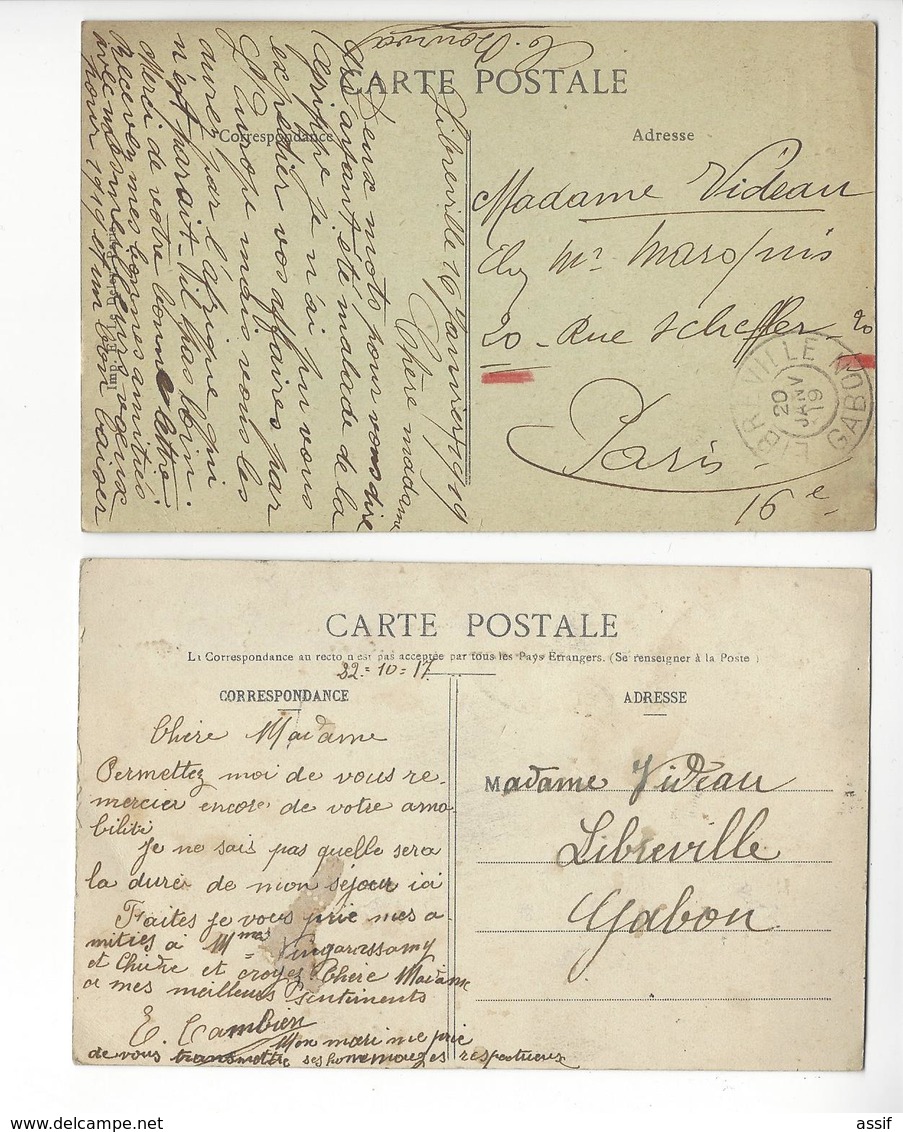 CARTE POSTALE
Correspondance
Adresse
Libreville 16 Janvier 1919
Chère madame
Deux mots pour vous dire
qu'ayant été malade de la
Grippe je n'ai pu vous
expédier vos affaires par
l'Europe mais vous les
aurez par l'Afrique qui
n'est parait-il pas loin.
Merci de votre bonne lettre
Recevez mes bonnes amitiés
avec mes meilleurs vœux
pour 1919 et un bon baiser
Imp. E. Le Deley, Paris
Madame Videau
chez Mr Marquis
20 - Rue Scheffer 20
Paris
16e
LIBREVILLE GABON
20
JANV
19
CARTE POSTALE
La Correspondance au recto n'est pas acceptée par tous les Pays Etrangers. (Se renseigner à la Poste)
22-10-17
CORRESPONDANCE
ADRESSE
Chère Madame
Permettez moi de vous re-
mercier encore de votre ama
bilité
Je ne sais pas quelle sera
la durée de mon séjour ici
Faites je vous prie mes a-
mitiés à Mmes Vingarassamy
et et croyez Chère Madame
a mes meilleurs Sentiments
E. Cambier
Mon mari me prie
de vous transmettre ses hommages respectueux
Madame Videau
Libreville
Gabon
assif